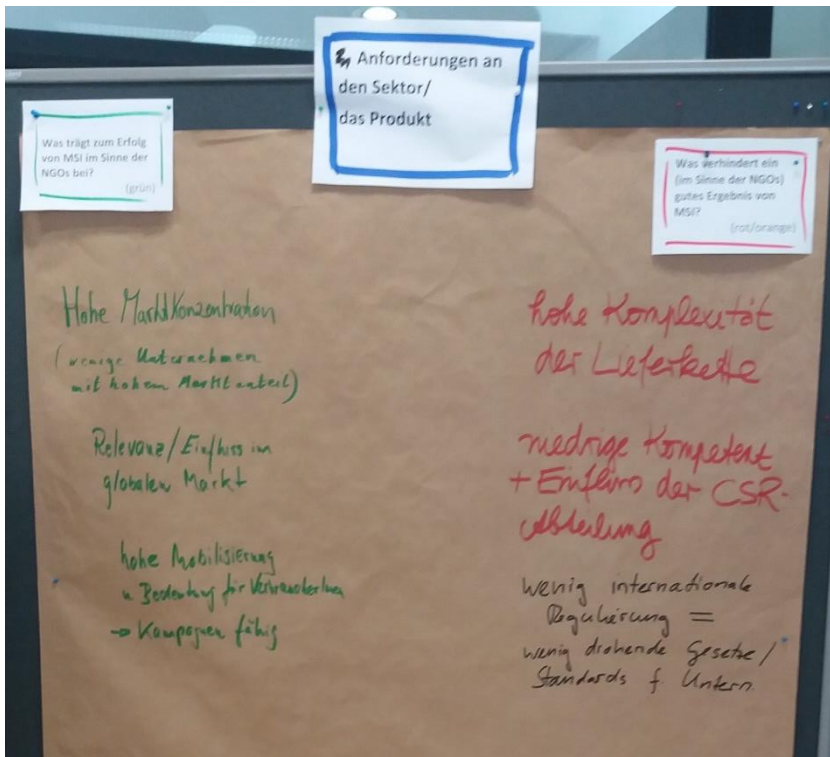 Anforderungen an
den Sektor/
das Produkt
Was trägt zum Erfolg
von MSI im Sinne der
NGOs bei?
(grün)
Was verhindert ein
(im Sinne der NGOs)
gutes Ergebnis von
MSI?
(rot/orange)
Hohe Marktkonzentration
(wenige Unternehmen
mit hohem Marktanteil)
Relevanz/Einfluss im
globalen Markt
hohe Mobilisierung
u Bedeutung für VerbraucherInnen
→ Kampagnen fähig
hohe Komplexität
der Lieferkette
niedrige Kompetent
+ Einfluss der CSR-
Abteilung
wenig internationale
Regulierung =
wenig drohende Gesetze/
Standards f. Untern.